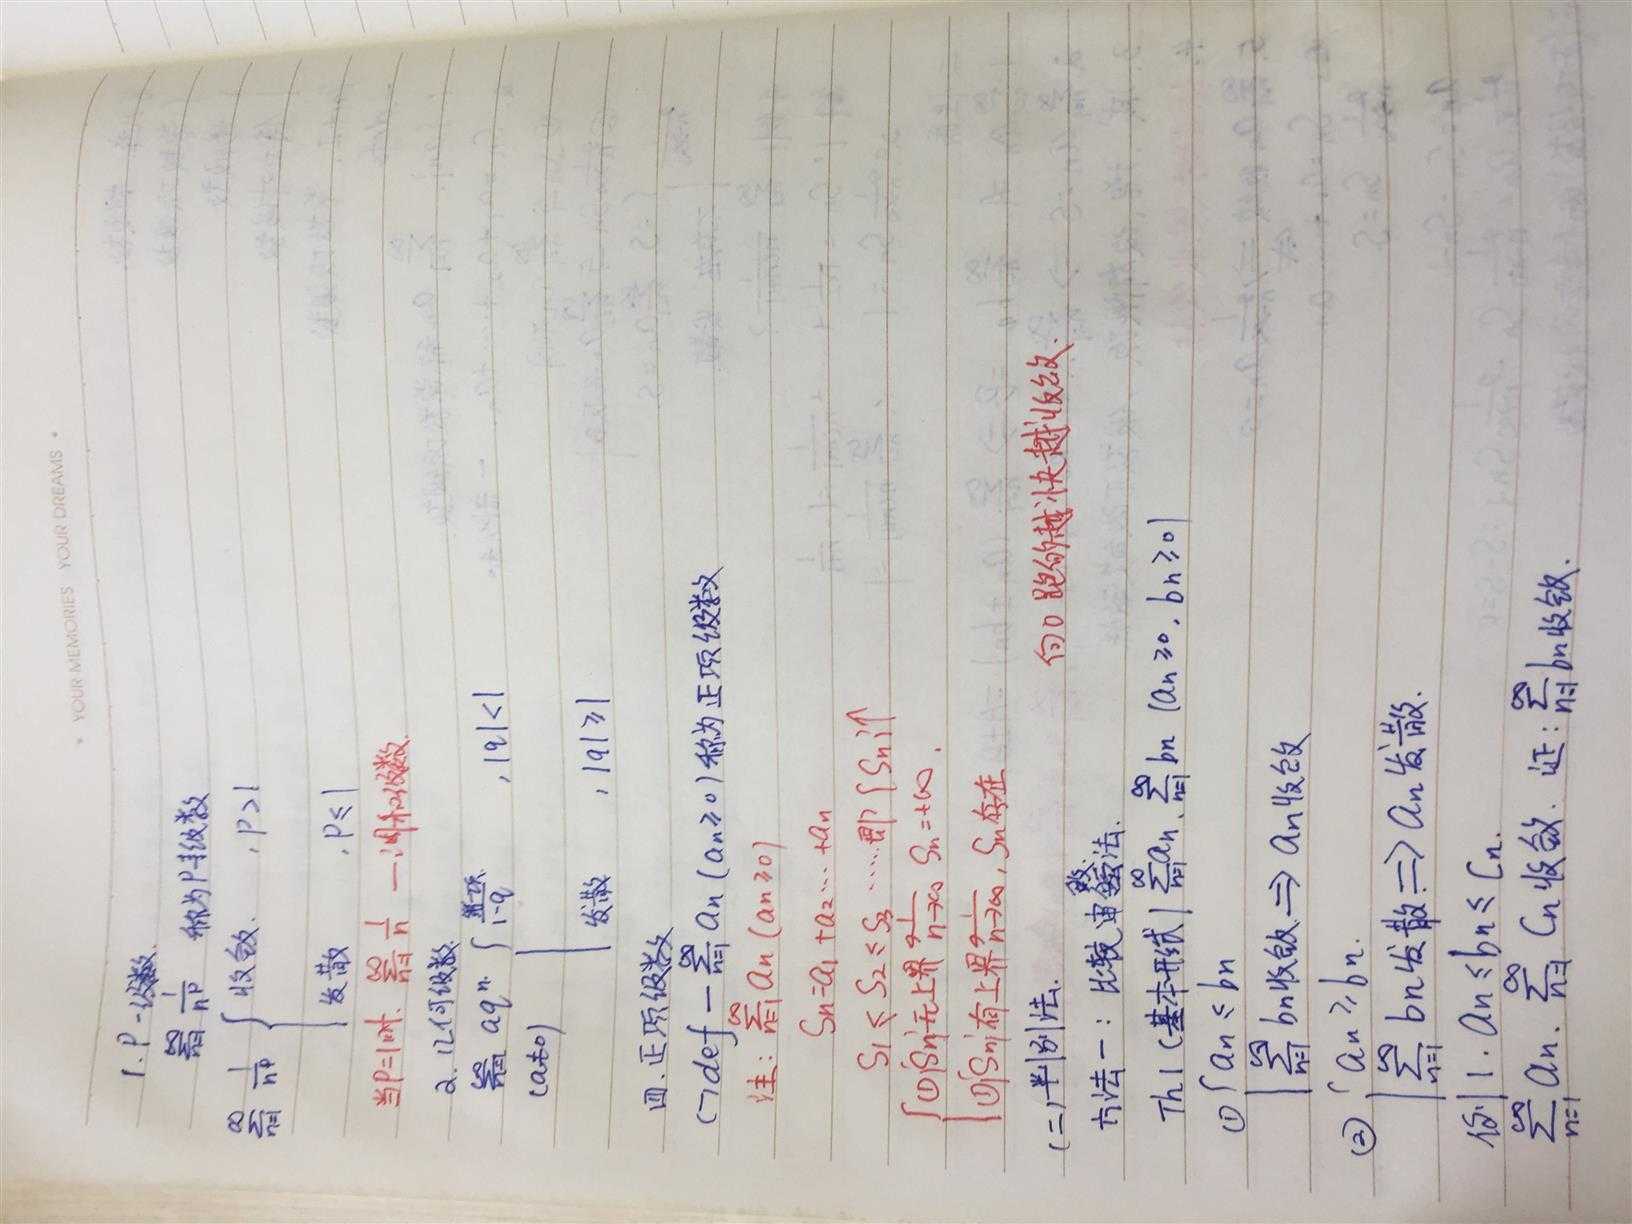 YOUR MEMORIES YOUR DREAMS
1. P-级数.
∑_{n=1}^{∞} 1/n^p 称为P-级数
∑_{n=1}^{∞} 1/n^p { 收敛. , P>1
发散 , P≤1
当P=1时. ∑_{n=1}^{∞} 1/n —调和级数.
2. 几何级数
∑_{n=1}^{∞} aq^n { 第一项/(1-q) , |q|<1
(a≠0)
发散 , |q|≥1
四. 正项级数
(一) def — ∑_{n=1}^{∞} an (an≥0) 称为正项级数
注: ∑_{n=1}^{∞} an (an≥0)
Sn=a1+a2……+an
S1≤S2≤S3……即{Sn}↑
{ ①{Sn}无上界 ⇒ lim_{n→∞} Sn=+∞.
②{Sn}有上界 ⇒ lim_{n→∞} Sn存在
(二) 判别法. 向0跑的越快越收敛.
方法一: 比较审敛法.
Th1 (基本形式) ∑_{n=1}^{∞} an. ∑_{n=1}^{∞} bn (an≥0. bn≥0)
① { an≤bn
∑_{n=1}^{∞} bn收敛 ⇒ an收敛
② { an≥bn.
∑_{n=1}^{∞} bn发散 ⇒ an发散.
例1. an≤bn≤Cn.
∑_{n=1}^{∞} an. ∑_{n=1}^{∞} Cn收敛. 证: ∑_{n=1}^{∞} bn收敛.